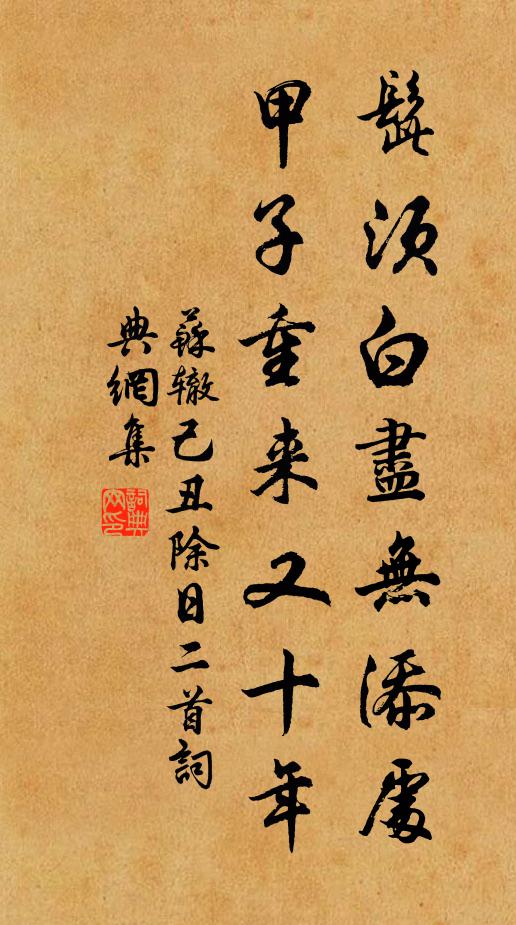 髭須白盡無添處
甲子重来又十年
蘇辙己丑除日二首詞
典網集
詞典
网印